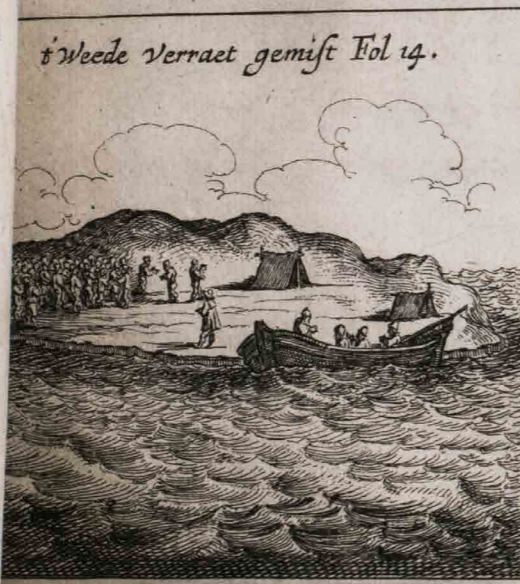 t'Weede Verraet gemist Fol 14.